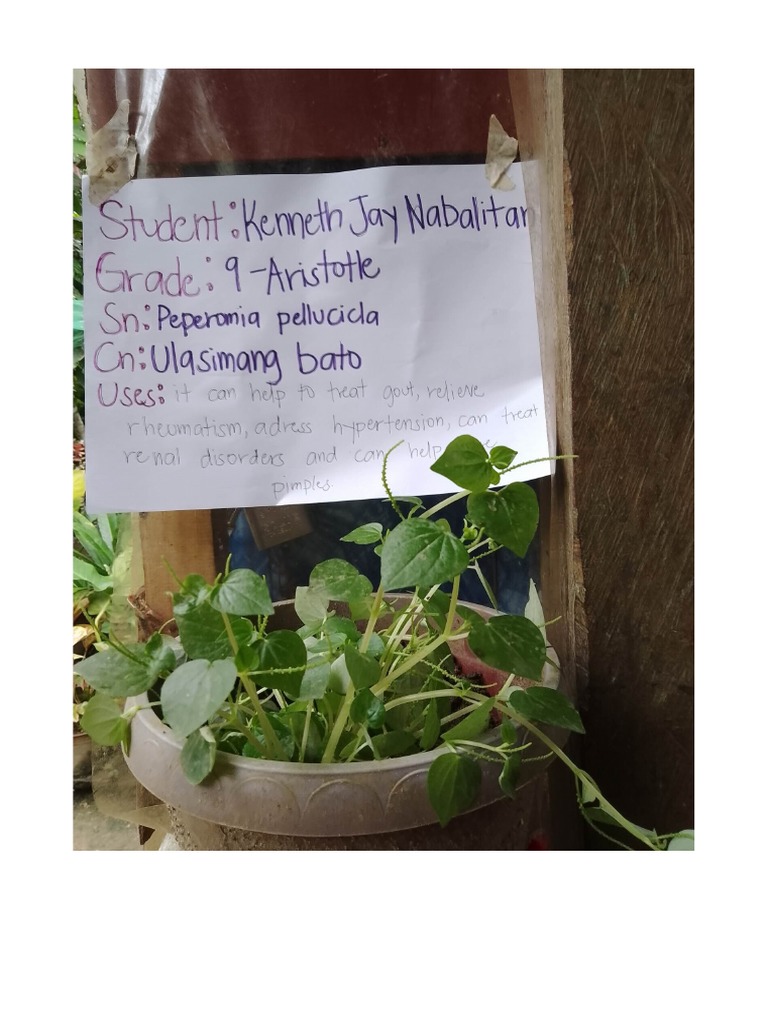 Student: Kenneth Jay Nabalitan
Grade: 9 - Aristotle
Sn: Peperomia pellucida
Cn: Ulasimang bato
Uses: it can help to treat gout, relieve
rheumatism, adress hypertension, can treat
renal disorders and can help
pimples.